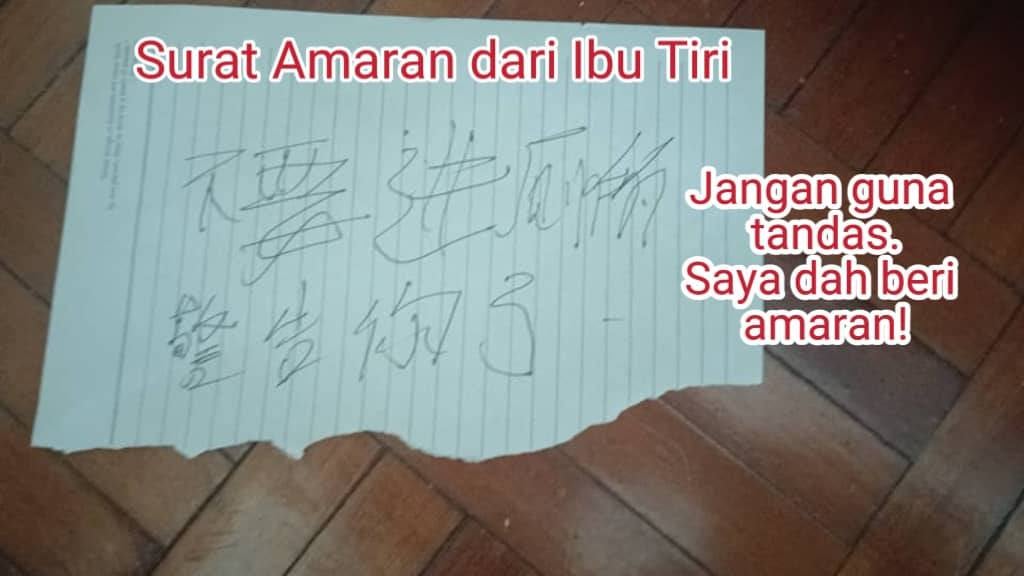 Surat Amaran dari Ibu Tiri
不要进厕所
警告你了
Jangan guna
tandas.
Saya dah beri
amaran!